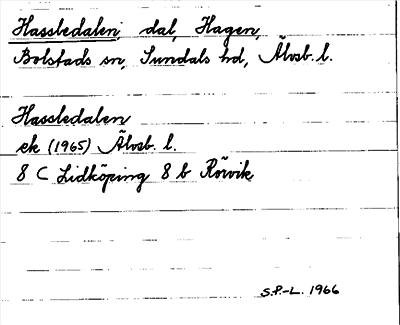 Hassledalen, dal, Hagen,
Bolstads sn, Sundals hd, Älvsb. l.
Hassledalen
ek (1965) Älvsb. l.
8 C Lidköping 8 b Rörvik
S.P.-L. 1966